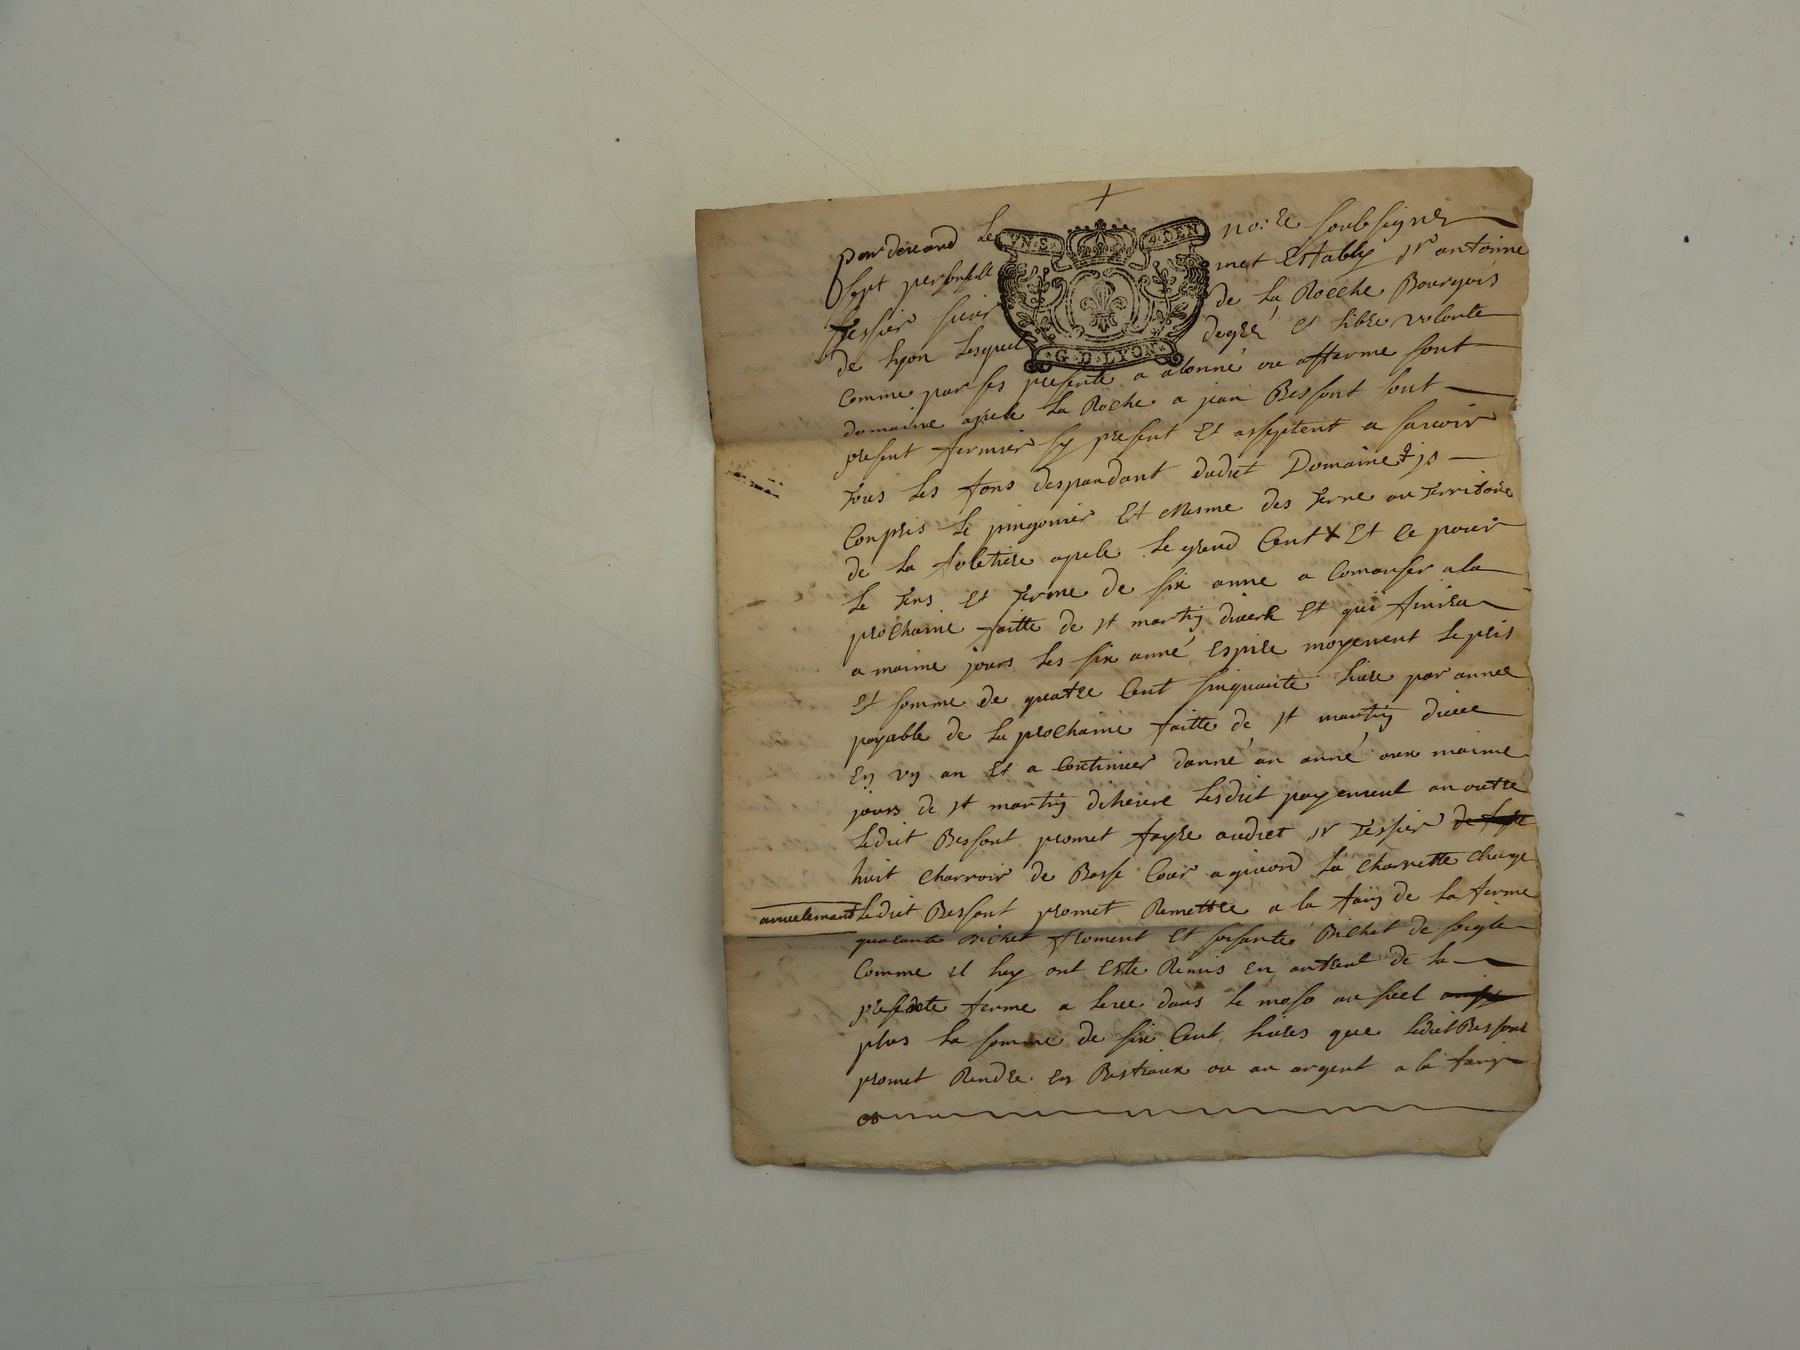 pardevand Le no:re soubsigner
sept personelle met Estably sr antoinne
Tessier sieur de La Roeche Bourgois
de lyon Lesquel degré et libre volonte
VN·S· 4·DEN
·G·D·LYON·
Comme par ses presente a abonné ou afferme sont
domaine apele La Roche a jean Bessont sont
present fermier sy present Et asseptent a savoir
Tous Les fons despandant dudict Domaine
Conpris Le pingonier Et Mesme des Terre ou Territoire
de La apele Le grand Cent Et Ce pour
Le Tens et Terme de six anne a Comanser ala
prochaine faitte de st martin diverk Et qui finira
a maime jours Les six anné Espire moyenent Le pris
Et somme de quatre Cent sinquante livre par annee
payable de La prochaine faitte de st martin diver
En vn an Et a Continuer danné an anné aux maime
jours de st martin dihever Lesdict payement an outre
Ledict Bessont promet fayre audict sr Tessier de
huit Charroir de Basse Cour aquiand La Charrette Charge
annuelemant Ledict Bessont promet Remettre a la fain de La ferme
quarante Bichet froment Et soisante Bichet de seigle
Comme il huy ont Este Remis en antrent de La
presente ferme a dans Le
plus La somme de six Cent livres que Ledict Bessont
promet Rendre En Bestiaux ou an argent a la fain